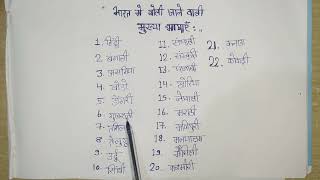 भारत में बोली जाने वाली
मुख्य भाषाएँ :-
1. हिंदी
2. बंगाली
3. असमिया
4. बोडो
5. डोगरी
6. गुजराती
7. तमिल
8. तेलुगू
9. उर्दू
10. सिंधी
11. संथाली
12. संस्कृत
13. पंजाबी
14. उड़िया
15. नेपाली
16. मराठी
17. मणिपुरी
18. मलयालम
19. मैथिली
20. कश्मीरी
21. कन्नड़
22. कोंकणी